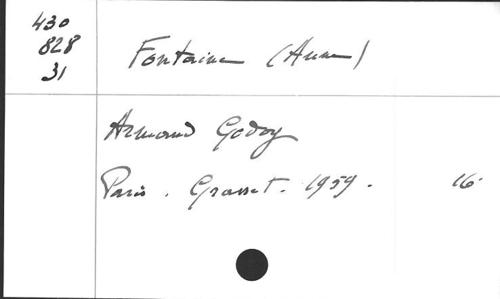 430
828
31
Fontaine (Anne)
Armand Godoy
Paris. Grasset. 1959. 16°